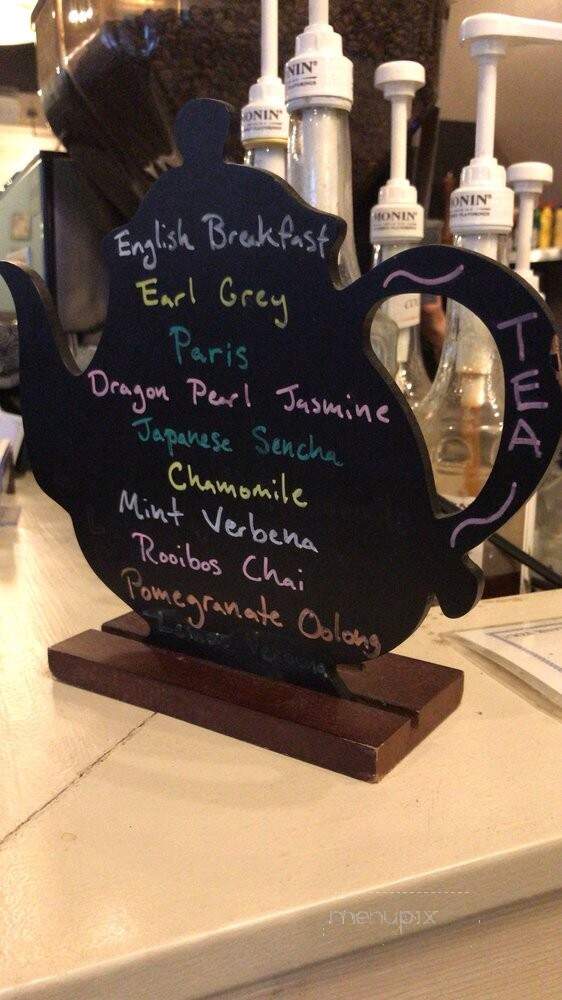 English Breakfast
Earl Grey
Paris
Dragon Pearl Jasmine
Japanese Sencha
Chamomile
Mint Verbena
Rooibos Chai
Pomegranate Oolong
TEA
MONIN
MONIN
MONIN
menupix